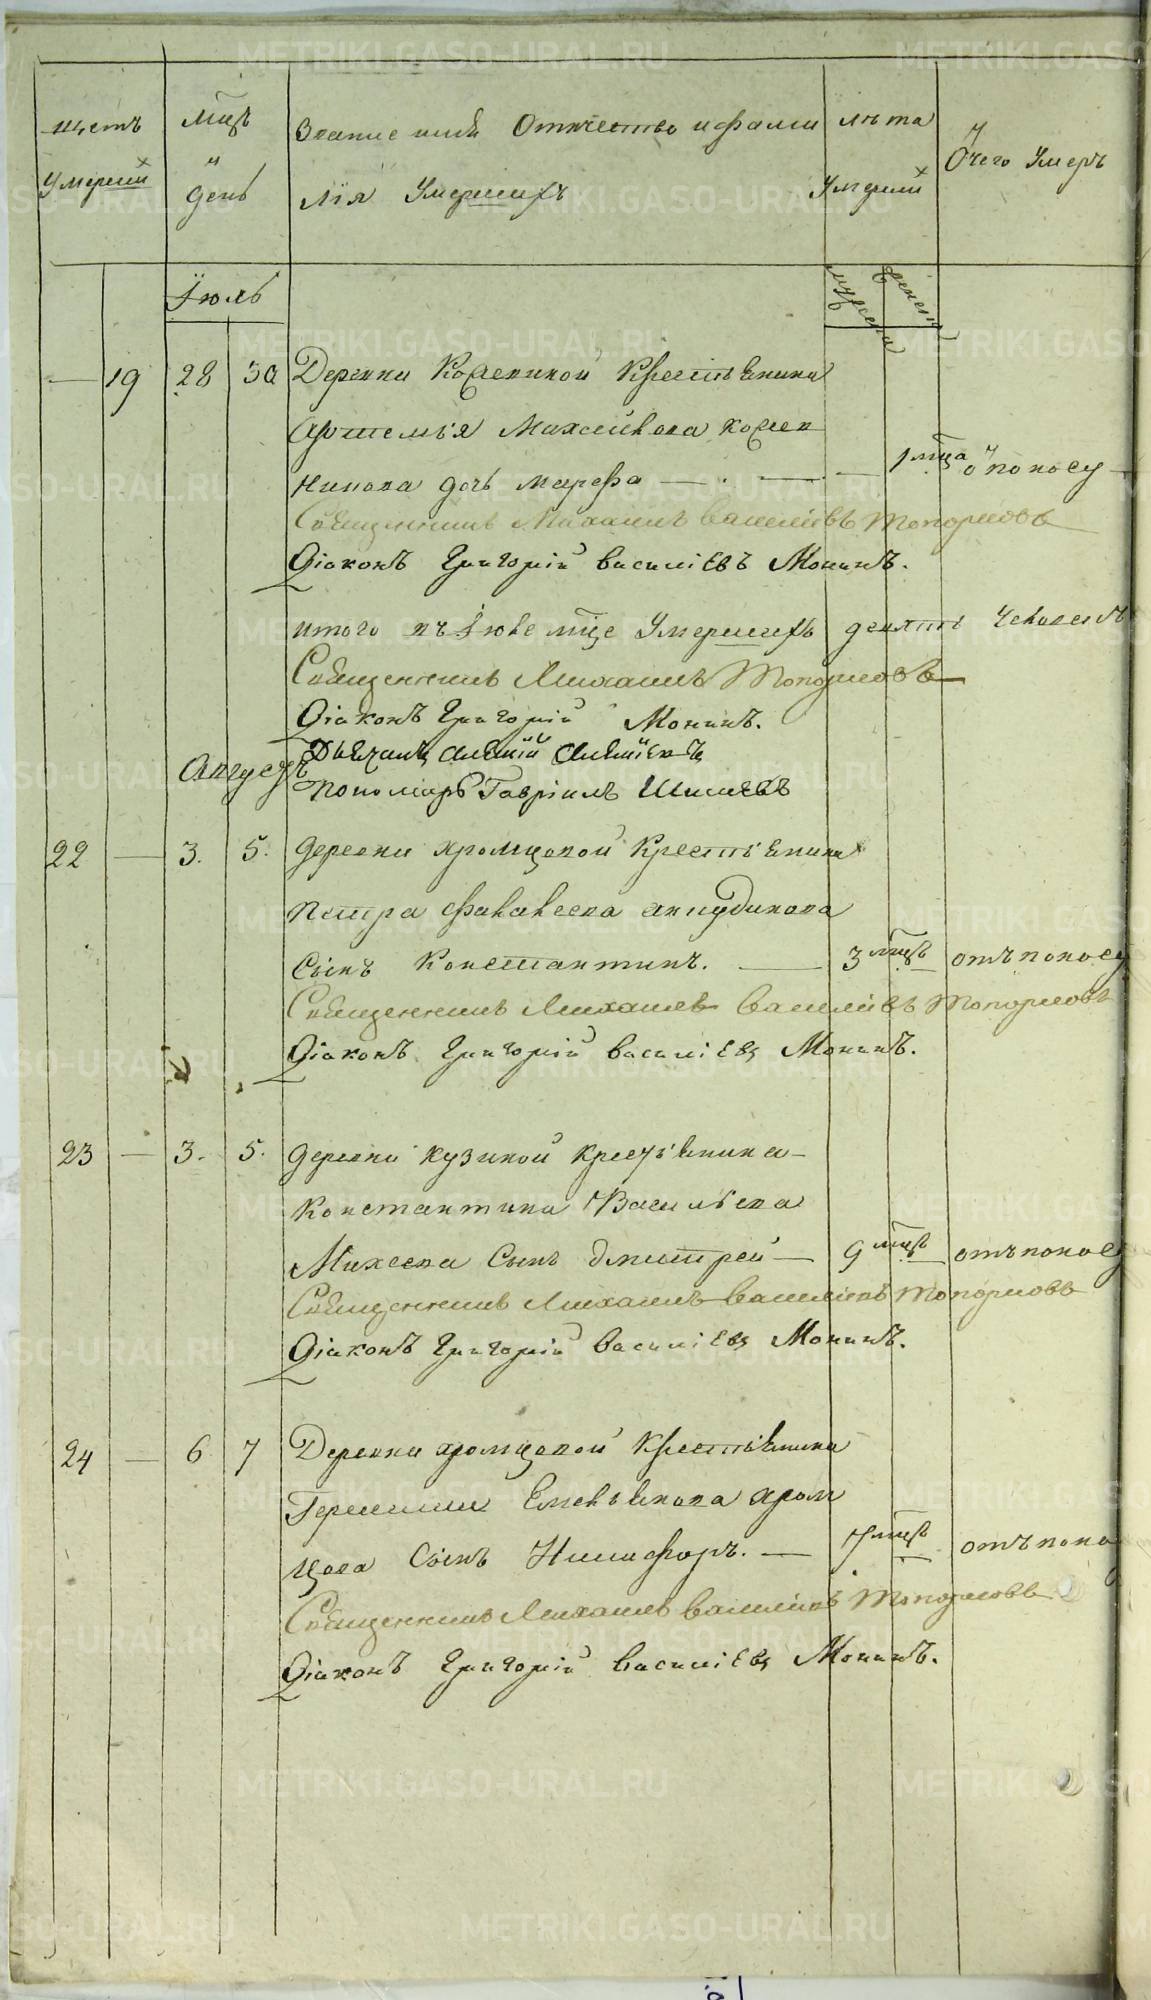 щетъ мцъ Званіе имя Отечество и фами лѣта
Умерши и день лія Умершихъ Умерши Отчего Умеръ
Іюль
мужеска женск
— 19 28 30 Деревни крестьянина
Артемья
дочь марефа — 1 мца от поносу
Священникъ Михаилъ Василіевъ Топорковъ
Діаконъ Григорій Василіевъ Монинъ.
итого въ Іюле мце Умершихъ девять человекъ
Священникъ Михаилъ Топорковъ
Діаконъ Григорій Монинъ.
Дьячекъ Алексій Алексіевъ
Августъ
Пономарь Гавріилъ Шишевъ
22 — 3. 5. деревни хромцовой Крестьянина
Петра анкудинова
Сынъ Константинъ. — 3 мцъ — отъ поносу
Священникъ Михаилъ Василіевъ Топорковъ
Діаконъ Григорій Василіевъ Монинъ.
23 — 3. 5. деревни кузиной крестьянина
Константина Васильева
Михеева Сынъ дмитрей — 9 мцъ — отъ поносу
Священникъ Михаилъ Василіевъ Топорковъ
Діаконъ Григорій Василіевъ Монинъ.
24 — 6 7 Деревни хромцовой Крестьянина
Емельянова хром
цова Сынъ Никифоръ. — 7 мцъ — отъ поно
Священникъ Михаилъ Василіевъ Топорковъ
Діаконъ Григорій Василіевъ Монинъ.
METRIKI.GASO-URAL.RU